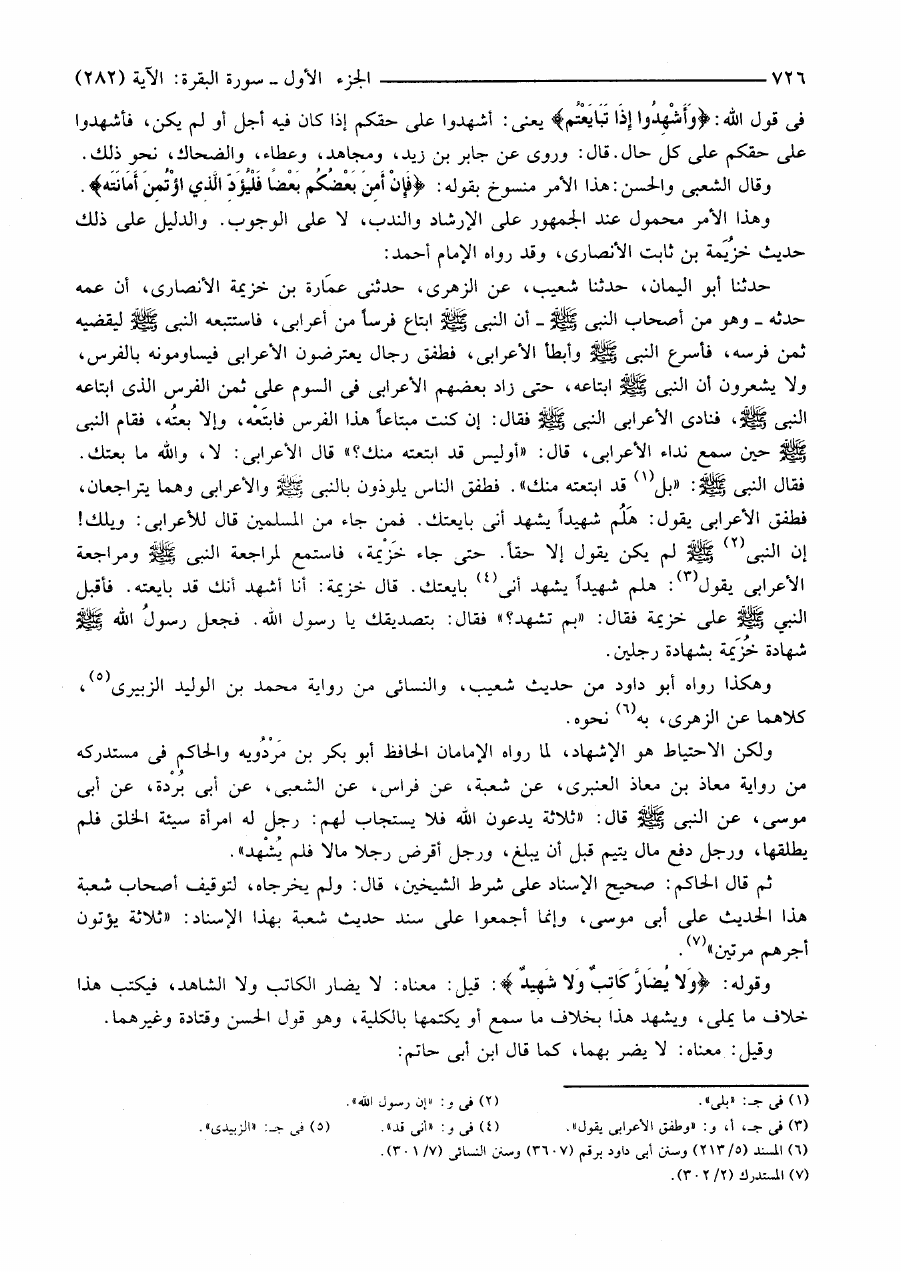 ٧٢٦ ــــــــــــــــــــ الجزء الأول ـ سورة البقرة: الآية (٢٨٢)
فى قول الله: ﴿وَأَشْهِدُوا إِذَا تَبَايَعْتُم﴾ يعنى: أشهدوا على حقكم إذا كان فيه أجل أو لم يكن، فأشهدوا
على حقكم على كل حال. قال: وروى عن جابر بن زيد، ومجاهد، وعطاء، والضحاك، نحو ذلك.
وقال الشعبى والحسن: هذا الأمر منسوخ بقوله: ﴿فَإِنْ أَمِنَ بَعْضُكُم بَعْضًا فَلْيُؤَدِّ الَّذِي اؤْتُمِنَ أَمَانَتَه﴾.
وهذا الأمر محمول عند الجمهور على الإرشاد والندب، لا على الوجوب. والدليل على ذلك
حديث خزُيَمة بن ثابت الأنصارى، وقد رواه الإمام أحمد:
حدثنا أبو اليمان، حدثنا شعيب، عن الزهرى، حدثنى عمَارة بن خزيمة الأنصارى، أن عمه
حدثه ـ وهو من أصحاب النبى ﷺ ـ أن النبى ﷺ ابتاع فرساً من أعرابى، فاستتبعه النبى ﷺ ليقضيه
ثمن فرسه، فأسرع النبى ﷺ وأبطأ الأعرابى، فطفق رجال يعترضون الأعرابى فيساومونه بالفرس،
ولا يشعرون أن النبى ﷺ ابتاعه، حتى زاد بعضهم الأعرابى فى السوم على ثمن الفرس الذى ابتاعه
النبى ﷺ، فنادى الأعرابى النبى ﷺ فقال: إن كنت مبتاعاً هذا الفرس فابتَعْه، وإلا بعتُه، فقام النبى
ﷺ حين سمع نداء الأعرابى، قال: «أوليس قد ابتعته منك؟» قال الأعرابى: لا، والله ما بعتك.
فقال النبى ﷺ: «بل(١) قد ابتعته منك». فطفق الناس يلوذون بالنبى ﷺ والأعرابى وهما يتراجعان،
فطفق الأعرابى يقول: هَلُم شهيداً يشهد أنى بايعتك. فمن جاء من المسلمين قال للأعرابى: ويلك!
إن النبى(٢) ﷺ لم يكن يقول إلا حقاً. حتى جاء خَزْيمة، فاستمع لمراجعة النبى ﷺ ومراجعة
الأعرابى يقول(٣): هلم شهيداً يشهد أنى(٤) بايعتك. قال خزيمة: أنا أشهد أنك قد بايعته. فأقبل
النبي ﷺ على خزيمة فقال: «بم تشهد؟» فقال: بتصديقك يا رسول الله. فجعل رسولُ الله ﷺ
شهادة خُزَيمة بشهادة رجلين.
وهكذا رواه أبو داود من حديث شعيب، والنسائى من رواية محمد بن الوليد الزبيرى(٥)،
كلاهما عن الزهرى، به(٦) نحوه.
ولكن الاحتياط هو الإشهاد، لما رواه الإمامان الحافظ أبو بكر بن مَرْدُويه والحاكم فى مستدركه
من رواية معاذ بن معاذ العنبرى، عن شعبة، عن فراس، عن الشعبى، عن أبى بُرْدة، عن أبى
موسى، عن النبى ﷺ قال: «ثلاثة يدعون الله فلا يستجاب لهم: رجل له امرأة سيئة الخلق فلم
يطلقها، ورجل دفع مال يتيم قبل أن يبلغ، ورجل أقرض رجلا مالا فلم يُشْهد».
ثم قال الحاكم: صحيح الإسناد على شرط الشيخين، قال: ولم يخرجاه، لتوقيف أصحاب شعبة
هذا الحديث على أبى موسى، وإنما أجمعوا على سند حديث شعبة بهذا الإسناد: «ثلاثة يؤتون
أجرهم مرتين»(٧).
وقوله: ﴿وَلا يُضَارَّ كَاتِبٌ وَلا شَهِيدٌ﴾: قيل: معناه: لا يضار الكاتب ولا الشاهد، فيكتب هذا
خلاف ما يملى، ويشهد هذا بخلاف ما سمع أو يكتمها بالكلية، وهو قول الحسن وقتادة وغيرهما.
وقيل: معناه: لا يضر بهما، كما قال ابن أبى حاتم:
(١) فى جـ: «بلى». (٢) فى و: «إن رسول الله».
(٣) فى جـ، أ، و: «وطفق الأعرابى يقول». (٤) فى و: «أنى قد». (٥) فى جـ: «الزبيدى».
(٦) المسند (٢١٣/٥) وسنن أبى داود برقم (٣٦٠٧) وسنن النسائى (٣٠١/٧).
(٧) المستدرك (٣٠٢/٢).